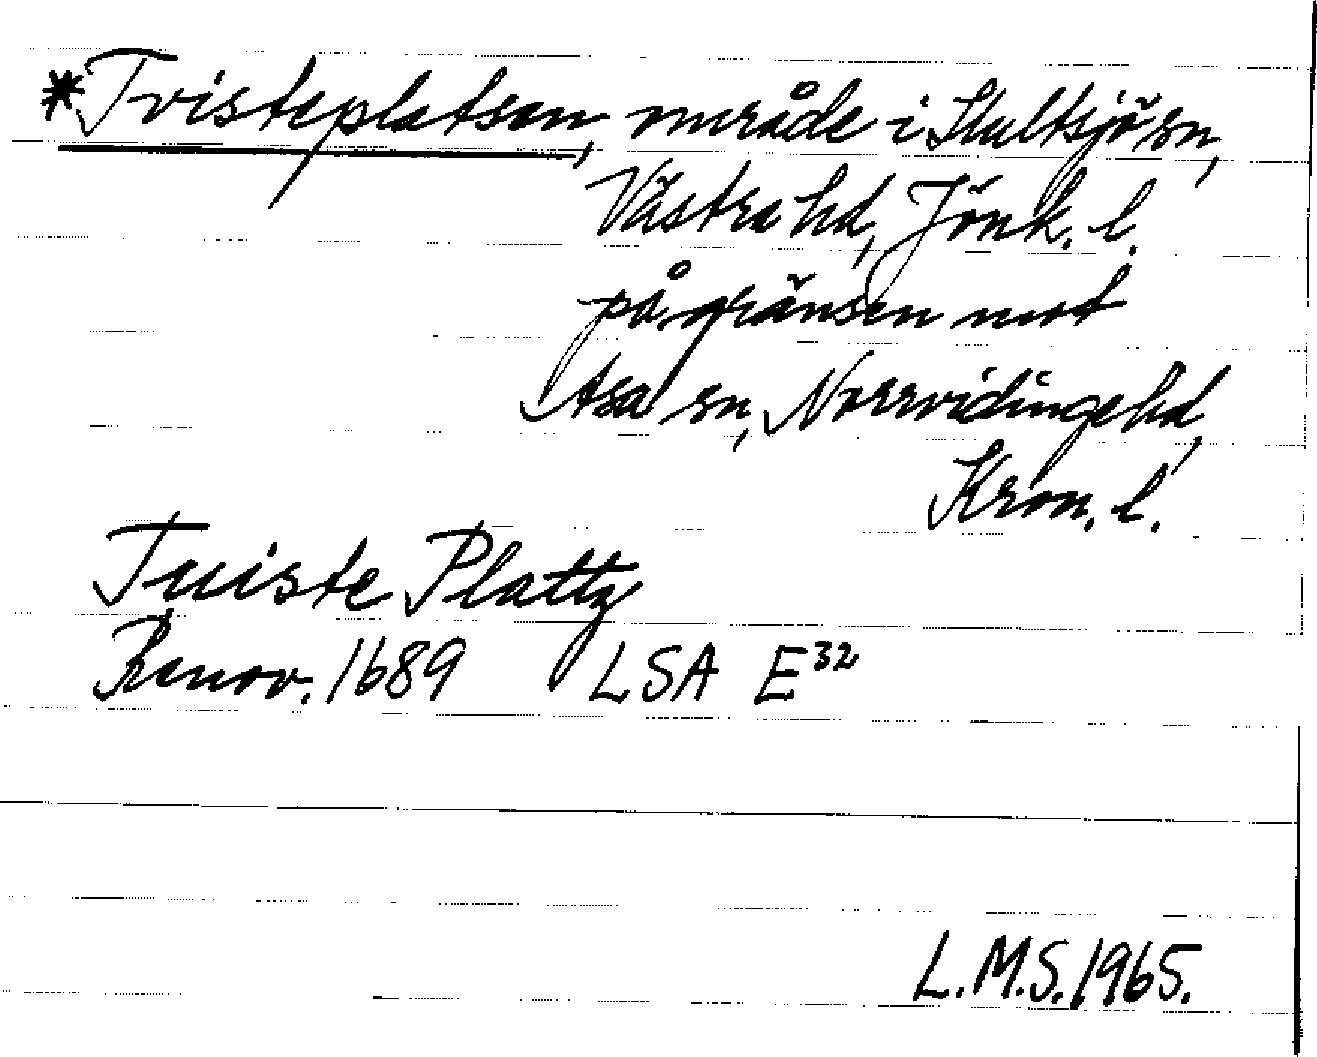 *Tvisteplatsen, område i Hultsjö sn,
Västra hd, Jönk. l.
på gränsen mot
Asa sn, Norrvidinge hd,
Kron. l.
Tuiste Plattz
Renov. 1689 LSA E32
L.M.S. 1965.